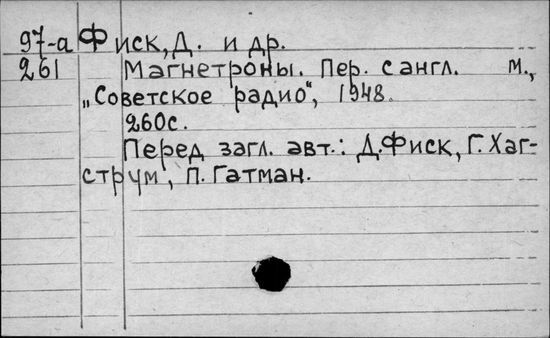 97-а Фиск, Д. и др.
261 Магнетроны. Пер. с англ. М.,
„Советское радио", 1948.
260с.
Перед загл. авт.: Д. Фиск, Г. Хаг-
струм, П. Гатман.